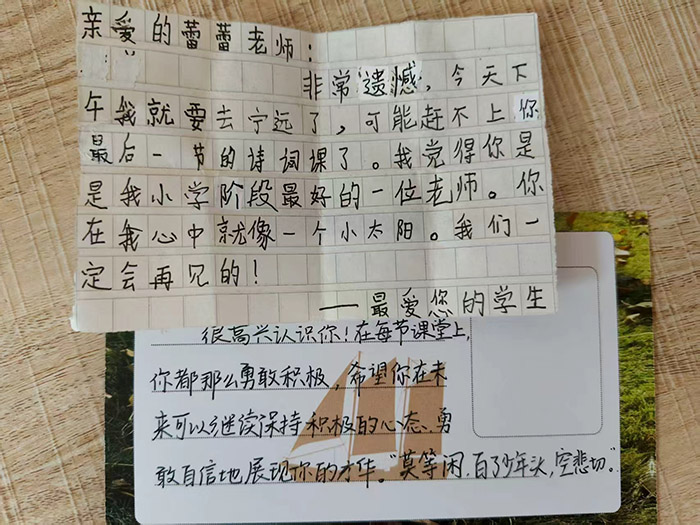 亲爱的蕾蕾老师：
非常遗憾，今天下
午我就要去宁远了，可能赶不上你
最后一节的诗词课了。我觉得你是
是我小学阶段最好的一位老师。你
在我心中就像一个小太阳。我们一
定会再见的！
——最爱您的学生
很高兴认识你！在每节课堂上，
你都那么勇敢积极，希望你在未
来可以继续保持积极的心态、勇
敢自信地展现你的才华。“莫等闲，白了少年头，空悲切。”